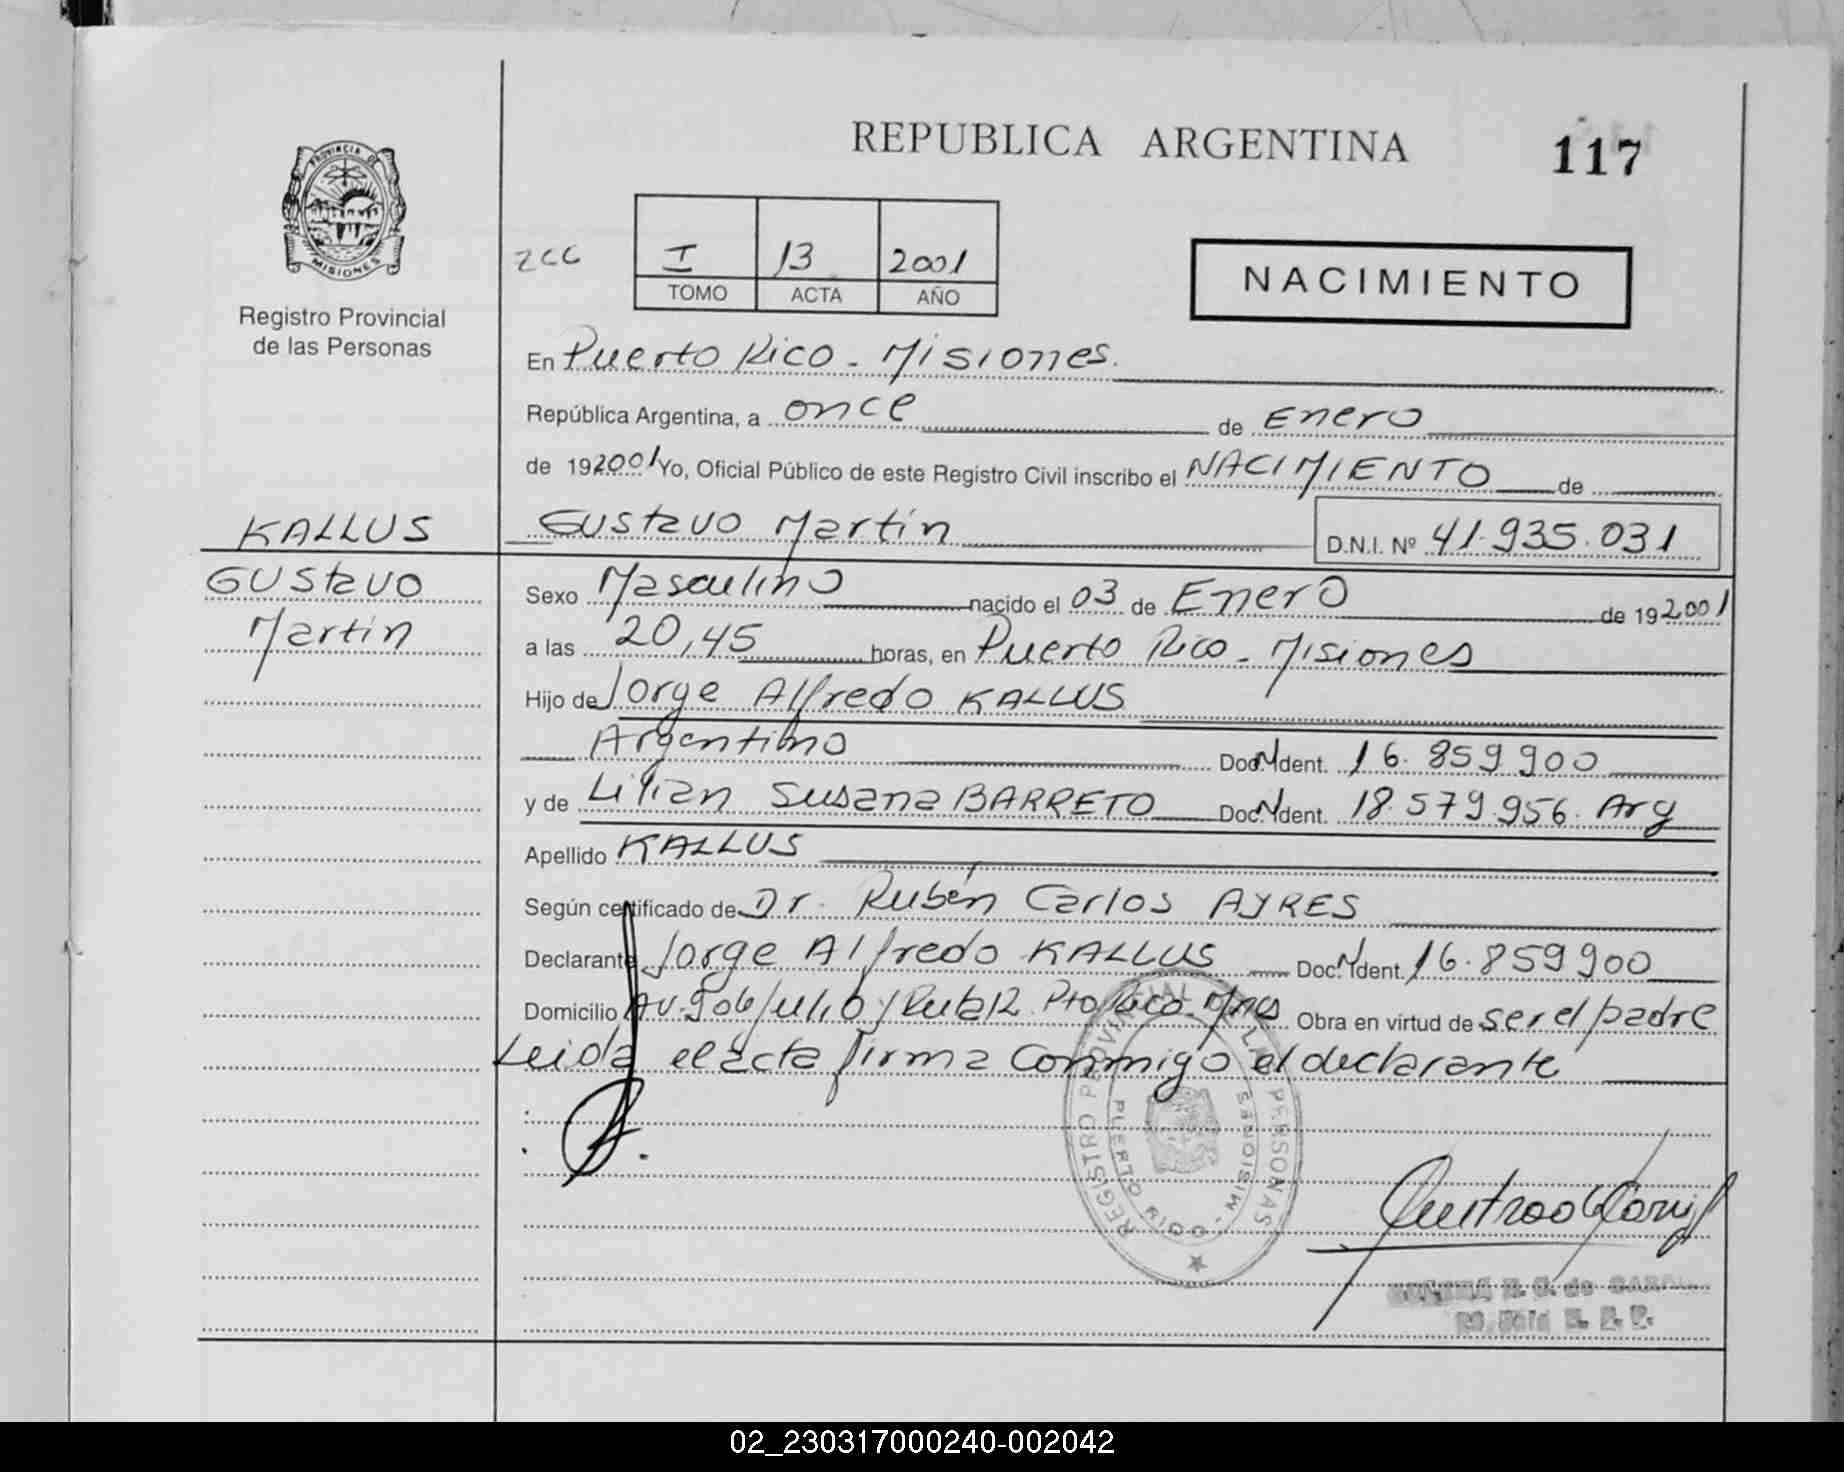 REPUBLICA ARGENTINA
117
PROVINCIA DE
MISIONES
Registro Provincial
de las Personas
I 13 2001
TOMO ACTA AÑO
NACIMIENTO
En Puerto Rico - Misiones.
República Argentina, a once de Enero
de 192001 Yo, Oficial Público de este Registro Civil inscribo el NACIMIENTO de
KALLUS
Gustavo Martin D.N.I. Nº 41.935.031
Gustavo
Martin
Sexo Masculino nacido el 03 de Enero de 192001
a las 20,45 horas, en Puerto Rico - Misiones
Hijo de Jorge Alfredo KALLUS
Argentino Doc. Ident. 16.859900
y de Lilian Susana BARRETO Doc. Ident. 18.579.956. Arg
Apellido KALLUS
Según certificado de Dr. Rubén Carlos AYRES
Declarante Jorge Alfredo KALLUS Doc. Ident. 16.859900
Domicilio Av. 9 de Julio y Ruta 12 Pto Rico - Mnes Obra en virtud de ser el padre
Leida el acta firma conmigo el declarante
REGISTRO PROVINCIAL DE LAS PERSONAS
PUERTO RICO - MISIONES
02_230317000240-002042